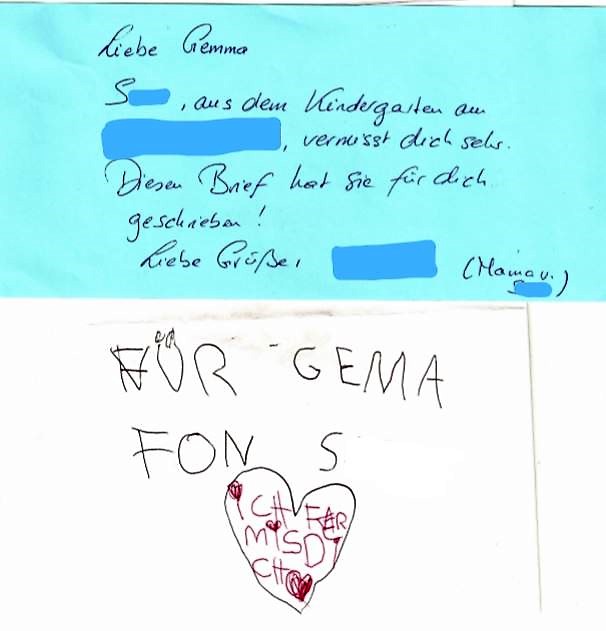 Liebe Gemma
S , aus dem Kindergarten am
, vermisst dich sehr.
Diesen Brief hat sie für dich
geschrieben!
Liebe Grüße, (Mama v.
S )
FÜR GEMA
FON S
ICH FER
MISDI
CH